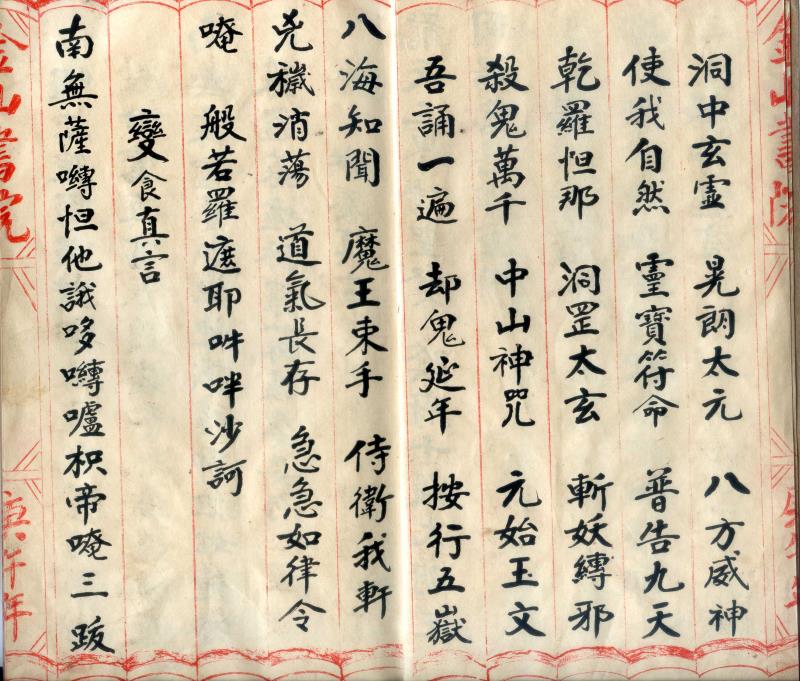 洞中玄虛 晃朗太元 八方威神
使我自然 靈寶符命 普告九天
乾羅怛那 洞罡太玄 斬妖縛邪
殺鬼萬千 中山神咒 元始玉文
吾誦一遍 却鬼延年 按行五嶽
八海知聞 魔王束手 侍衛我軒
兇穢消蕩 道氣長存 急急如律令
唵 般若羅遮耶吽吽沙訶
變食真言
南無薩嚩怛他誐哆嚩嚧枳帝唵三跋